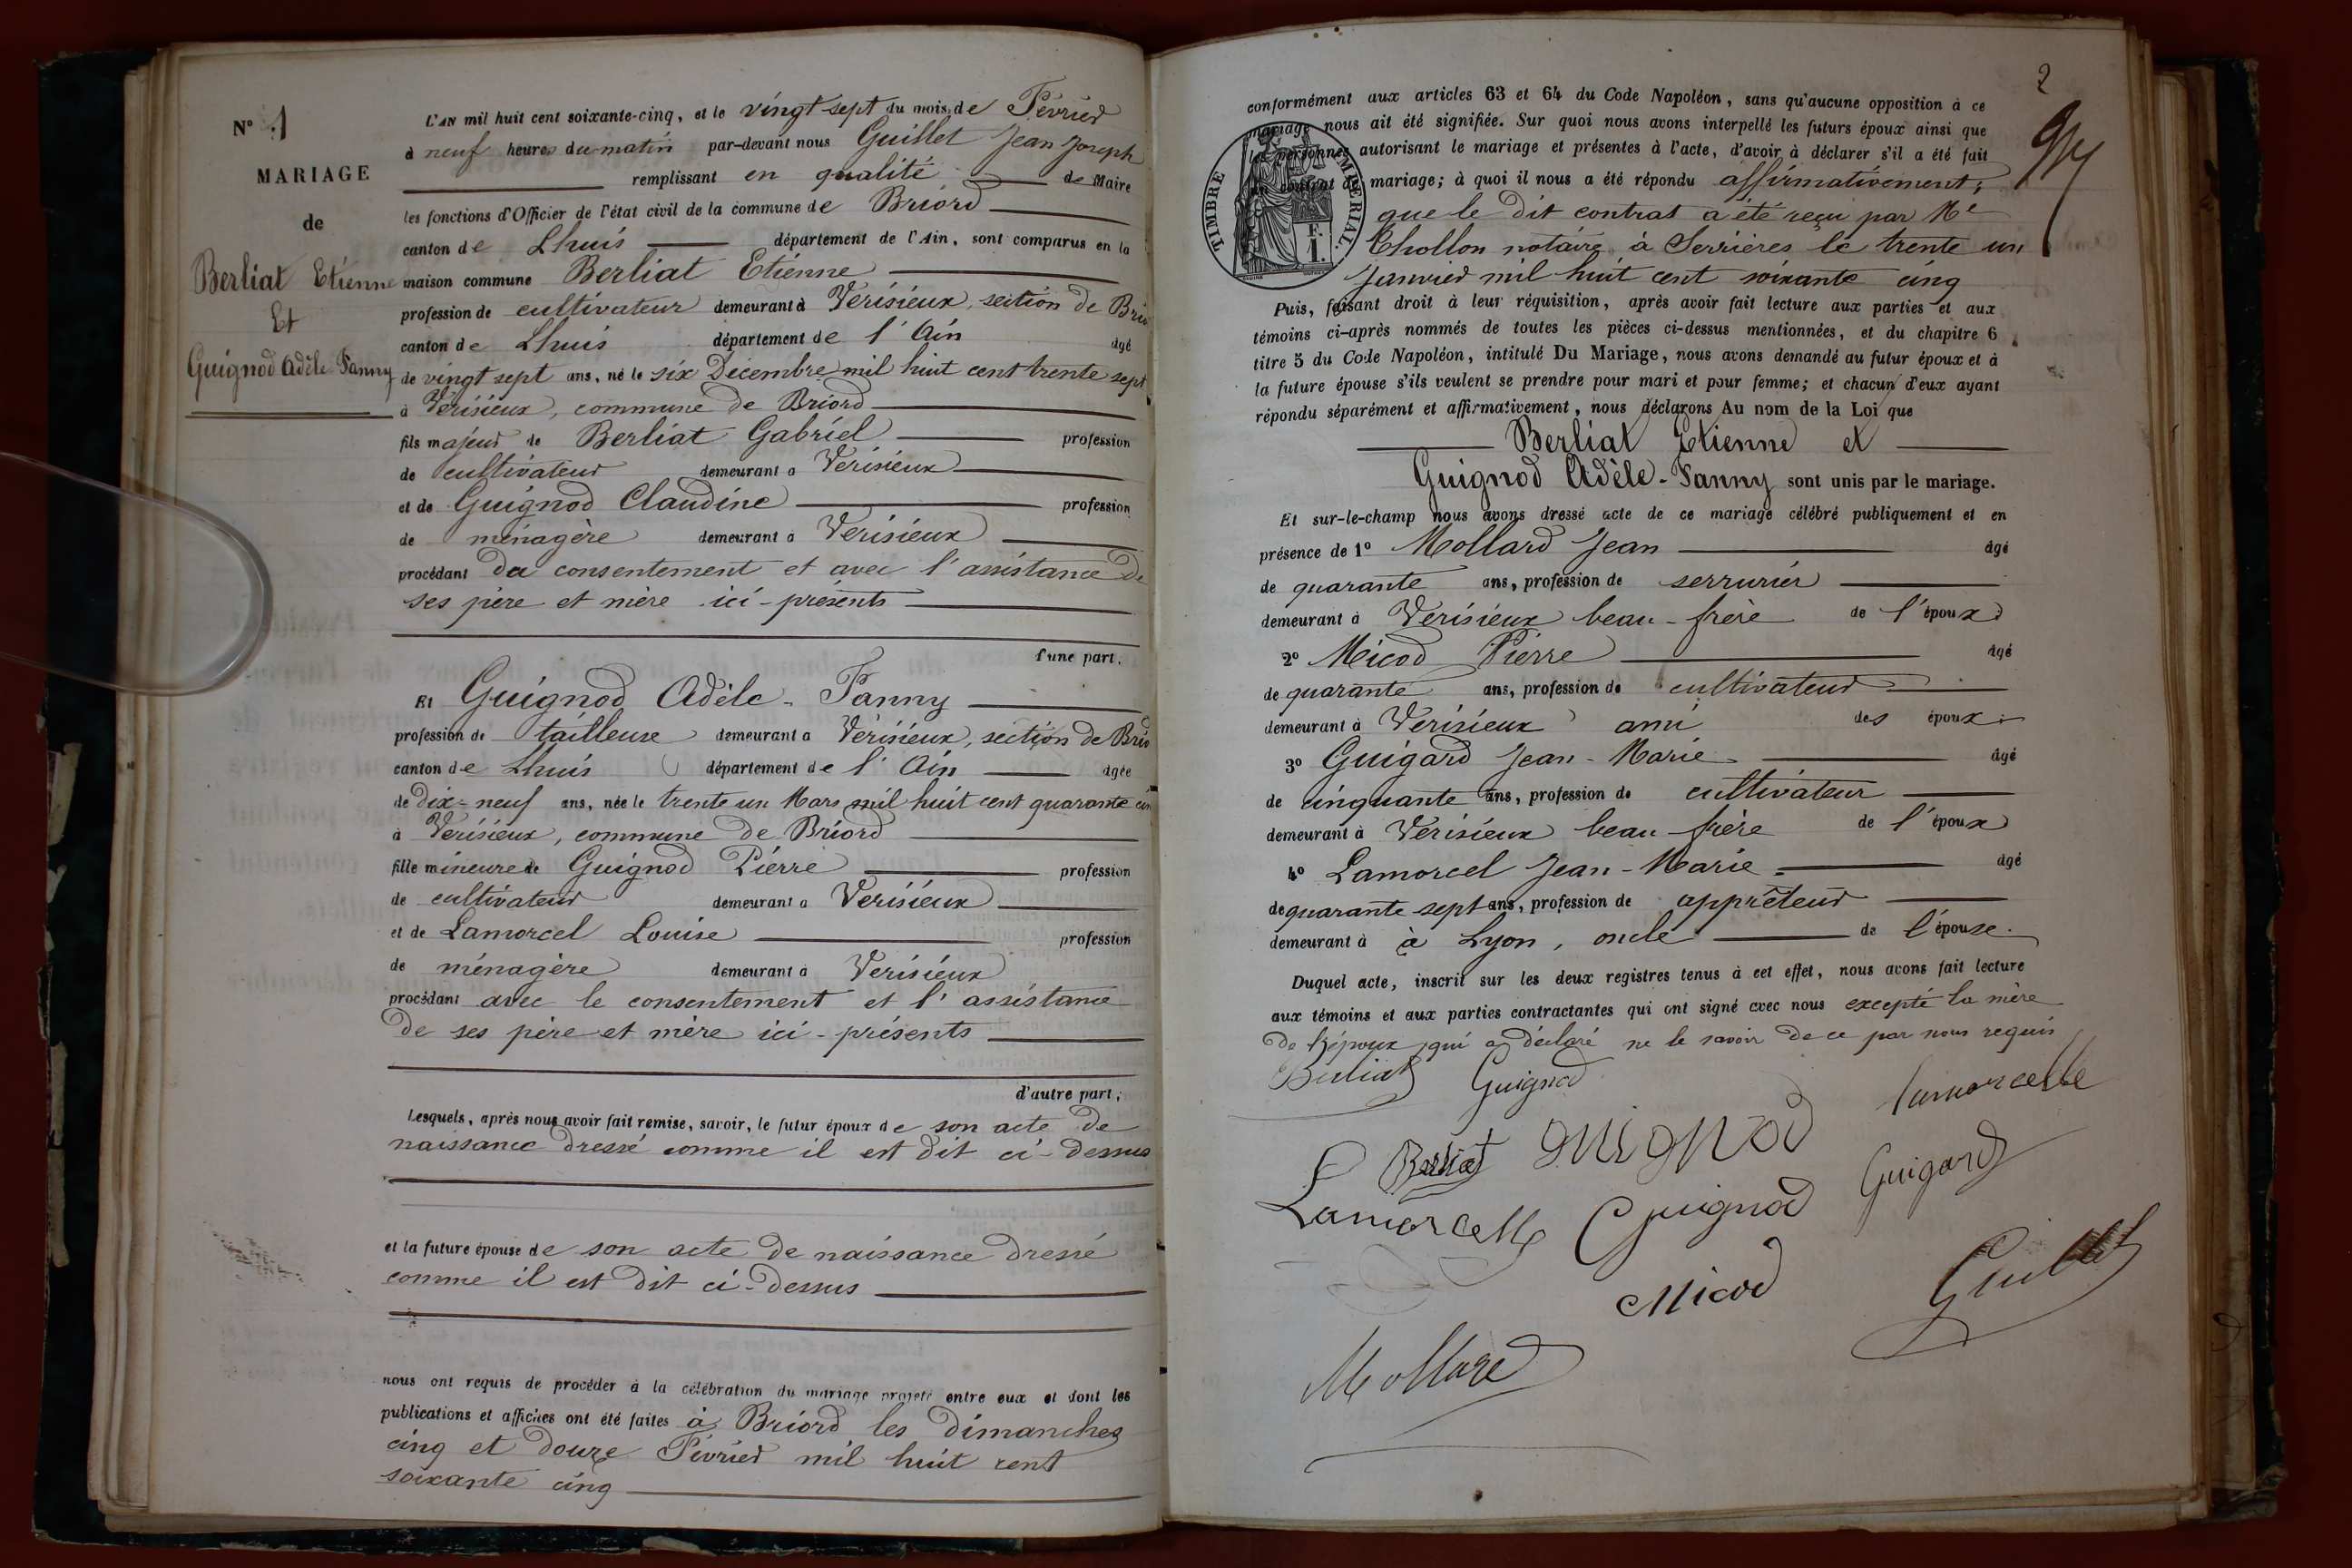 N° 1
MARIAGE
de
Berliat Etienne
Et
Guignod Adèle Fanny
L'AN mil huit cent soixante-cinq, et le vingt sept du mois de Février
à neuf heures du matin par-devant nous Guillet Jean Joseph
remplissant en qualité de Maire
les fonctions d'Officier de l'état civil de la commune de Briord
canton de Lhuis département de l'Ain, sont comparus en la
maison commune Berliat Etienne
profession de cultivateur demeurant à Vérisieux, section de Brio
canton de Lhuis département de l'Ain âgé
de vingt sept ans, né le six Décembre mil huit cent trente sept
à Vérisieux, commune de Briord
fils majeur de Berliat Gabriel profession
de cultivateur demeurant a Vérisieux
et de Guignod Claudine profession
de ménagère demeurant à Vérisieux
procédant du consentement et avec l'assistance de
ses père et mère ici-présents
d'une part.
Et Guignod Adèle-Fanny
profession de tailleuse demeurant a Vérisieux, section de Brio
canton de Lhuis département de l'Ain âgée
de dix-neuf ans, née le trente un Mars mil huit cent quarante cin
à Vérisieux, commune de Briord
fille mineure de Guignod Pierre profession
de cultivateur demeurant a Vérisieux
et de Lamorcel Louise profession
de ménagère demeurant à Vérisieux
procédant avec le consentement et l'assistance
de ses père et mère ici-présents
d'autre part;
Lesquels, après nous avoir fait remise, savoir, le futur époux de son acte de
naissance dressé comme il est dit ci-dessus
et la future épouse de son acte de naissance dressé
comme il est dit ci-dessus
nous ont requis de procéder à la célébration du mariage projeté entre eux et dont les
publications et affiches ont été faites à Briord les dimanches
cinq et douze Février mil huit cent
soixante cinq
2
conformément aux articles 63 et 64 du Code Napoléon, sans qu'aucune opposition à ce
mariage nous ait été signifiée. Sur quoi nous avons interpellé les futurs époux ainsi que
les personnes autorisant le mariage et présentes à l'acte, d'avoir à déclarer s'il a été fait
un contrat de mariage; à quoi il nous a été répondu affirmativement;
TIMBRE IMPÉRIAL
F.
1.
que le dit contrat a été reçu par Me
Chollon notaire à Serrières le trente un
Janvier mil huit cent soixante cinq
Puis, faisant droit à leur réquisition, après avoir fait lecture aux parties et aux
témoins ci-après nommés de toutes les pièces ci-dessus mentionnées, et du chapitre 6
titre 5 du Code Napoléon, intitulé Du Mariage, nous avons demandé au futur époux et à
la future épouse s'ils veulent se prendre pour mari et pour femme; et chacun d'eux ayant
répondu séparément et affirmativement, nous déclarons Au nom de la Loi que
Berliat Etienne et
Guignod Adèle-Fanny sont unis par le mariage.
Et sur-le-champ nous avons dressé acte de ce mariage célébré publiquement et en
présence de 1° Mollard Jean âgé
de quarante ans, profession de serrurier
demeurant à Vérisieux beau-frère de l'époux
2° Micod Pierre âgé
de quarante ans, profession de cultivateur
demeurant à Vérisieux ami des époux
3° Guigard Jean-Marie âgé
de cinquante ans, profession de cultivateur
demeurant à Vérisieux beau-frère de l'époux
4° Lamorcel Jean-Marie âgé
de quarante sept ans, profession de apprêteur
demeurant à à Lyon, oncle de l'épouse.
Duquel acte, inscrit sur les deux registres tenus à cet effet, nous avons fait lecture
aux témoins et aux parties contractantes qui ont signé avec nous excepté la mère
de l'époux, qui a déclaré ne le savoir de ce par nous requis
Berliat Guignod lamorcelle
Berliat guignod
Lamorcelle Guignod Guigard
Micod Guillet
Mollard